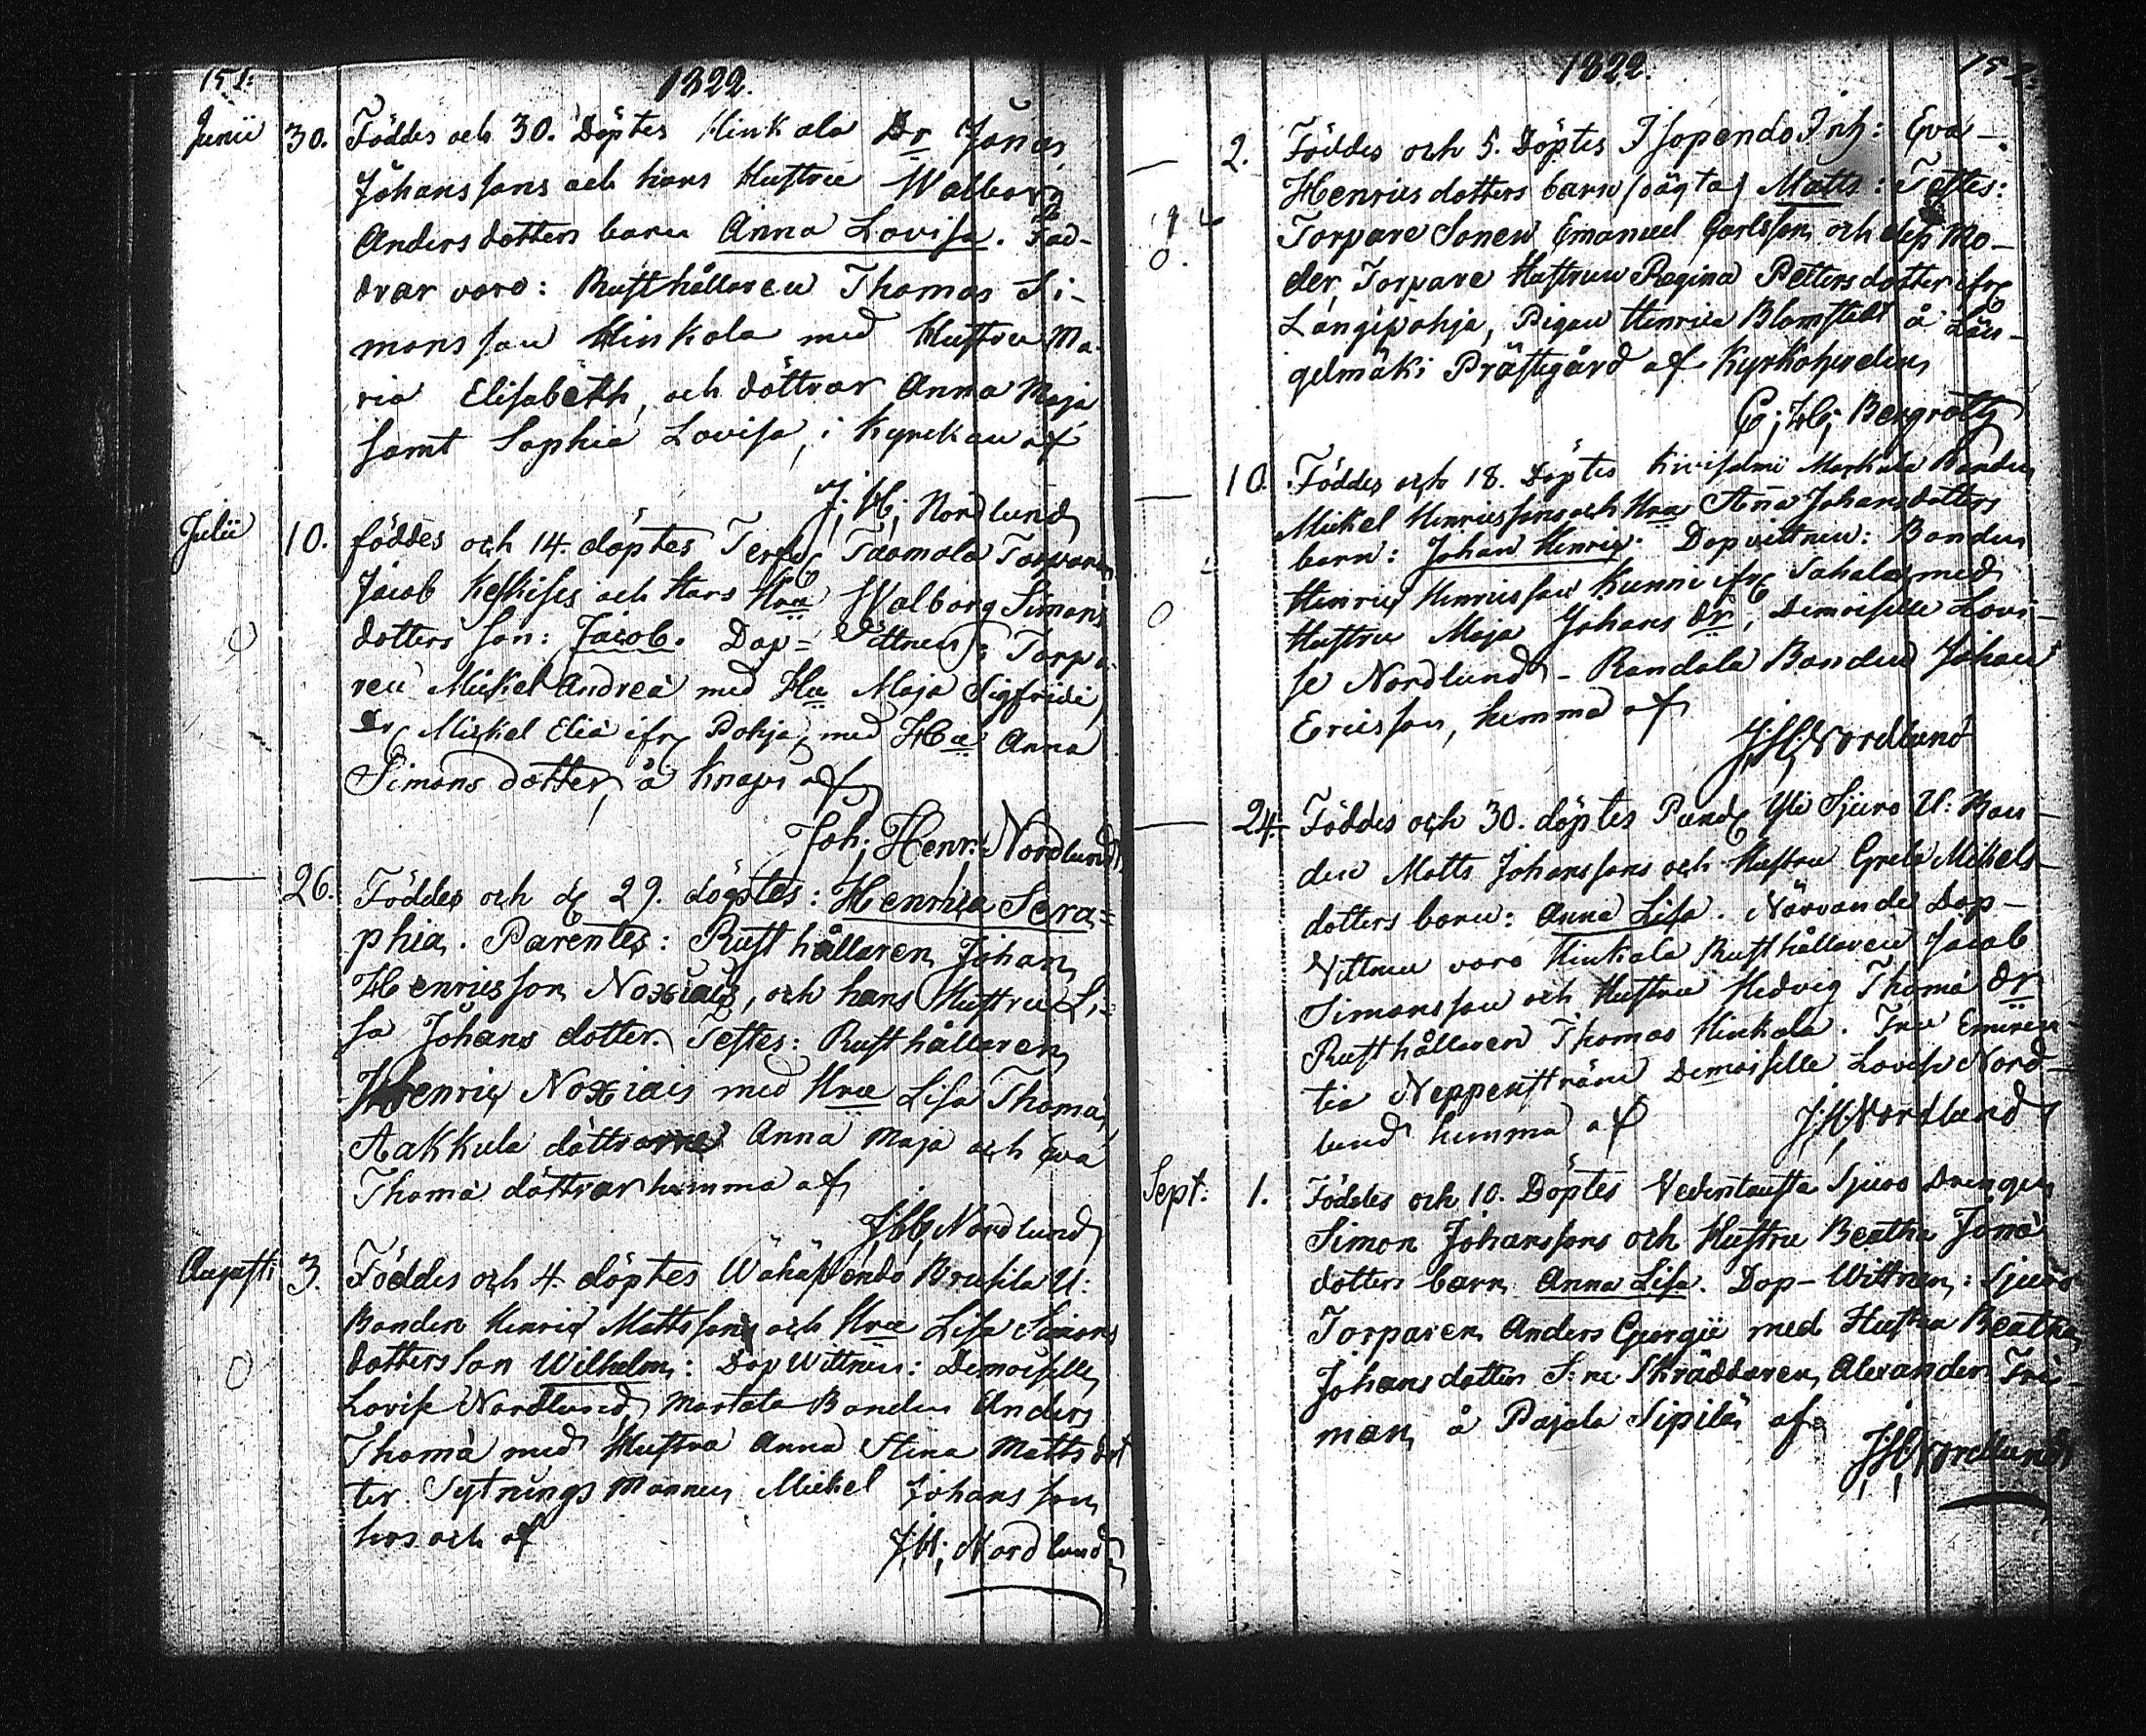 151.
1822.
Junii 30. Föddes och 30. Döptes Hinkala Dr Jonas
Johanssons och hans Hustru Walborg
Andersdotters barn Anna Lovisa. Fad-
drar voro: Rusthållaren Thomas Si-
monsson Hinkala med Hustru Ma-
ria Elisabeth, och döttrar Anna Maja
samt Sophia Lovisa, i Kyrckan af
J; H; Nordlund
Julii 10. föddes och 14. döptes Torparen
Jacob och Hans Hru Walborg Simons
dotters son: Jacob. Dop= Vittnen: Torpa-
ren Mickel Andreä med Hu Maja Sigfridi,
Dr Mickel Eliä ifr Pohja, med Hu Anna
Simons dotter, å Knapi af
Joh; Henr: Nordlund
26. Föddes och d 29. döptes: Henrica Sera=
phia. Parentes: Rusthållaren Johan
Henricsson Noxiais, och hans Hustru Li=
sa Johans dotter. Testes: Rusthållaren
Henric Noxiais med Hru Lisa Thomä,
Aakkula döttrarne Anna Maja och Eva
Thomä döttrar hemma af
J;H; Nordlund
Augusti 3. Föddes och 4. döptes Brusila U:
Bonden Henric Mattssons och Hru Lisa Simons
dotters Son Wilhelm: Dop Wittnen: Demoiselle
Lovise Nordlund, Bonden Anders
Thomä med Hustru Anna Stina Matts dot
ter. Sytnings Mannen Mickel Johansson
hos och af
J;H; Nordlund
1822.
2. Föddes och 5. Döptes Isopendo Inh: Eva
Henricsdotters barn (oägta) Matts: Testes:
Torpare Sonen Emanuel Carlsson och dess Mo-
der, Torpare Hustrun Regina Pettersdotter ifr
Längipohja, Pigan Henrica Blomstedt å Län-
gelmäki Prästegård af Kyrkoherden
C; H; Bergroth
10. Föddes och 18. Döptes Bonden
Mickel Henricssons och Hru Ana Johansdotters
barn: Johan Henric. Dopvittnen: Bonden
Henric Henricsson Kunni ifr Sahala med
Hustru Maja Johans dr, Demoiselle Lovi-
se Nordlund - Randala Bonden Johan
Ericsson, hemma af
J;H; Nordlund
24. Föddes och 30. döptes Yli Sjuro U: Bon-
den Matts Johanssons och Hustru Greta Mikels-
dotters barn: Anna Lisa. Närvande Dop-
Vittnen voro Hinkala Rusthållaren Jacob
Simonsson och Hustru Hedvig Thomä dr
Rusthållaren Thomas Hinkala. Fru Emeren-
tia Neppenström Demoiselle Lovise Nord-
lund hemma af J;H; Nordlund
Sept: 1. Föddes och 10. Döptes Sjuro Drengen
Simon Johanssons och Hustru Beatha Jonä
dotters barn Anna Lisa. Dop-Wittnen: Sjuro
Torparen Anders Georgii med Hustru Beatha
Johansdotter S:ne Skräddaren, Alexander Fri-
man, å Pajala Sipilä af
J;H; Nordlund